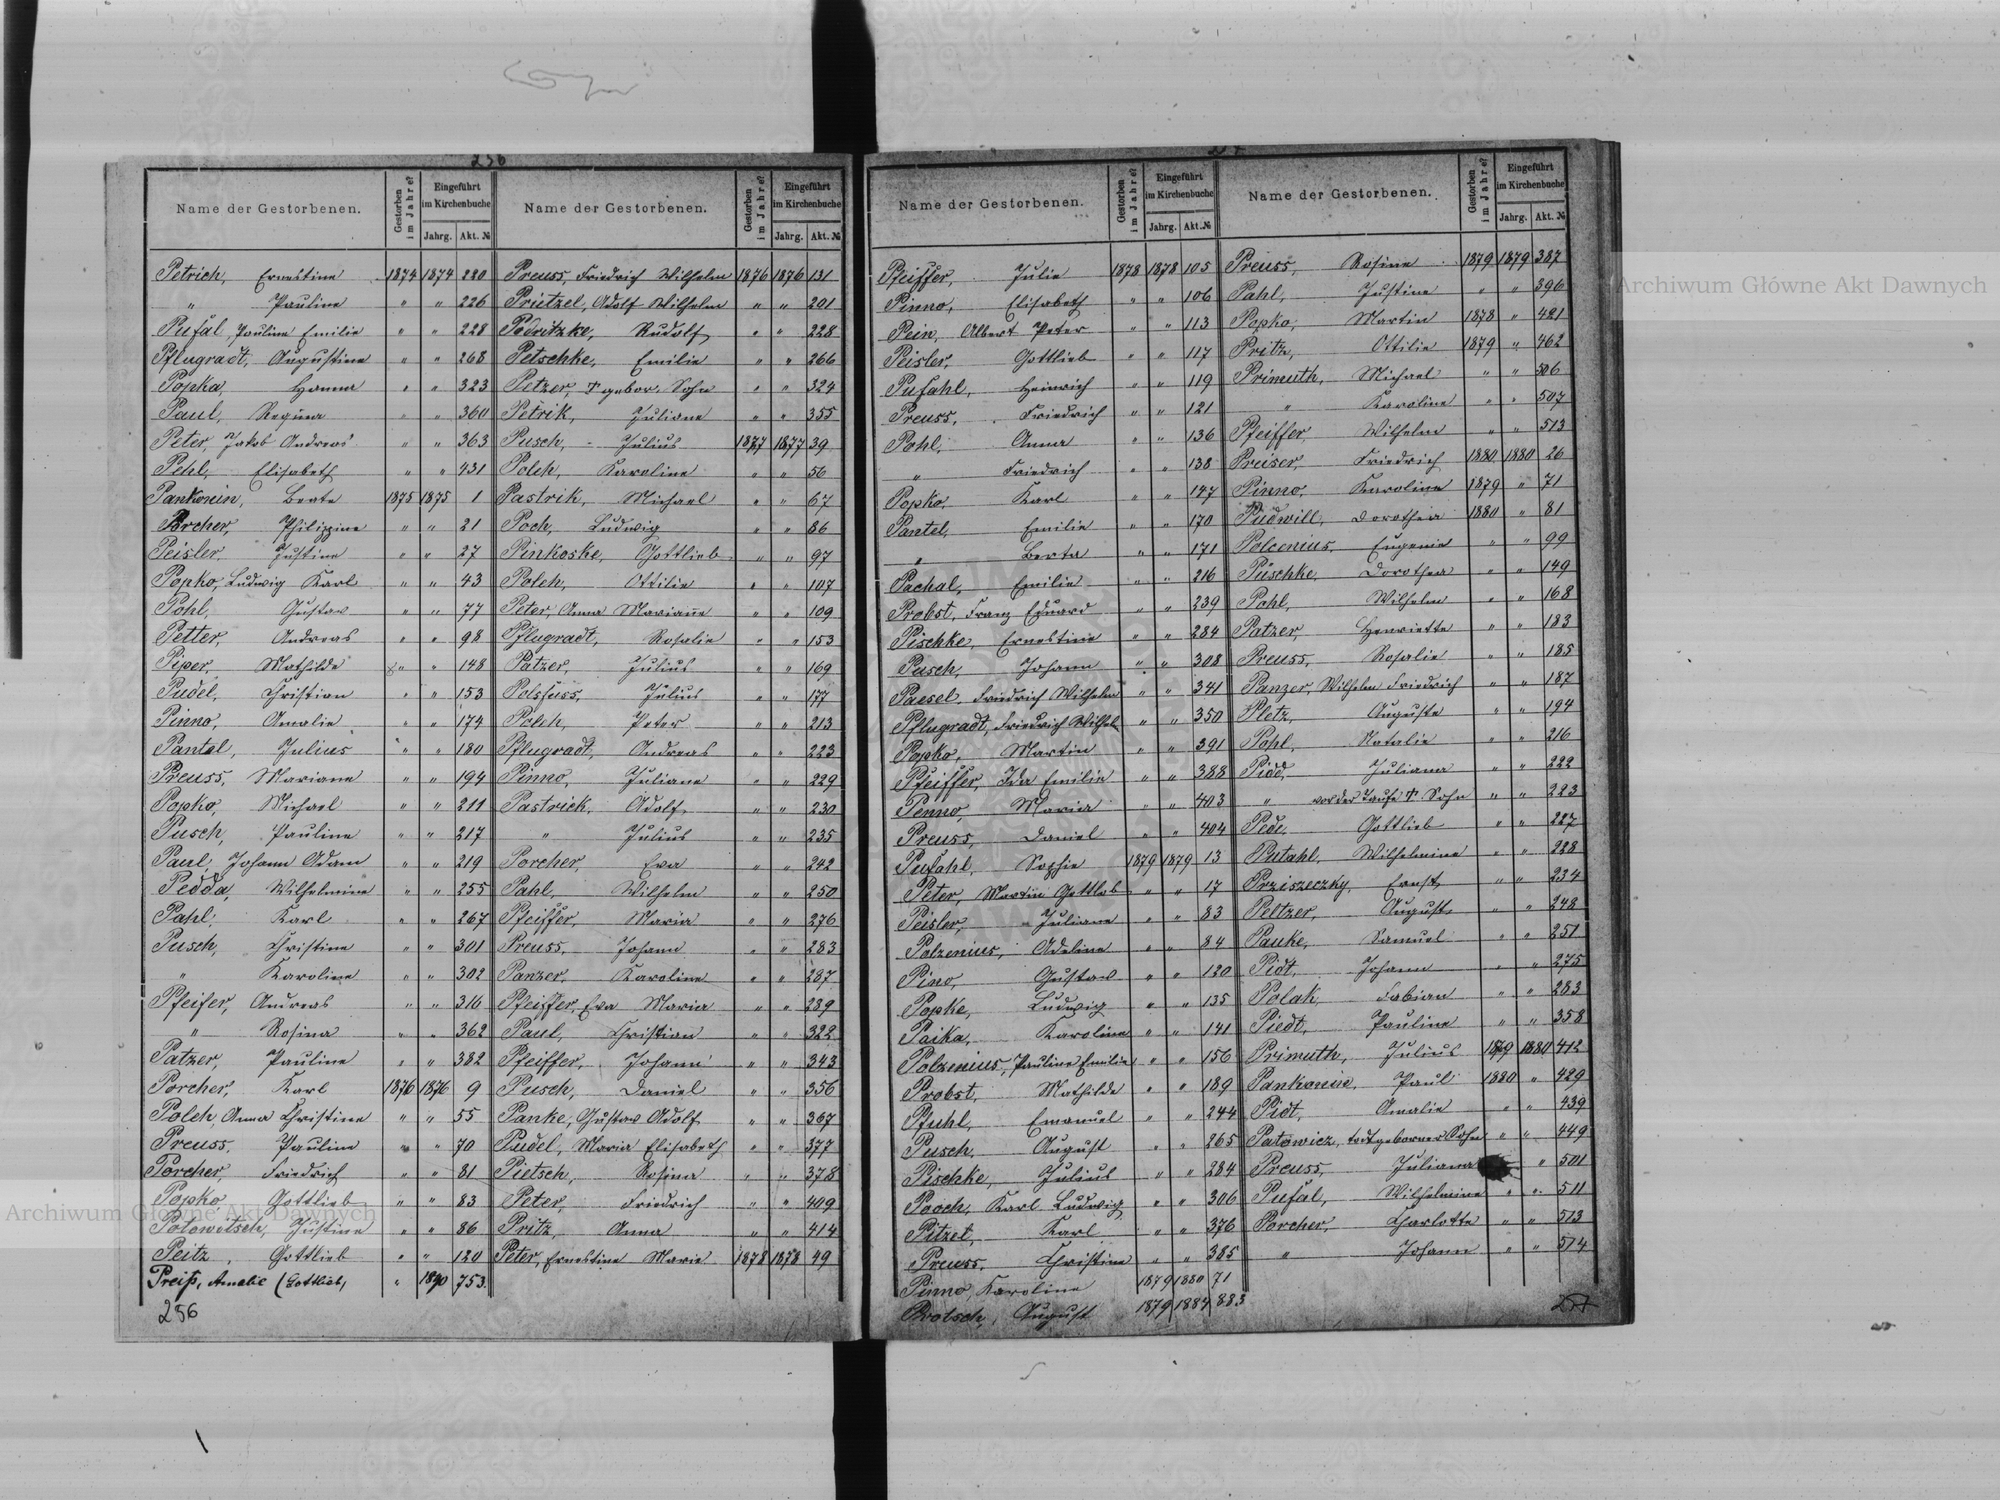 256
Name der Gestorbenen. Gestorben im Jahre? Eingeführt im Kirchenbuche Jahrg. Akt. №
Petrich, Ernestine 1874 1874 220
" Pauline " " 226
Pufal, Pauline Emilie " " 228
Pflugradt, Augustine " " 268
Popka, Hanna " " 323
Paul, Regina " " 360
Peter, Jakob Andreas " " 363
Pehl, Elisabeth " " 431
Pankonin, Beate 1875 1875 1
Porcher, Philippine " " 21
Peisler, Justine " " 27
Popko, Ludwig Karl " " 43
Pohl, Gustav " " 77
Petter, Andreas " " 98
Piper, Mathilde " " 148
Pudel, Christian " " 153
Pinno, Amalie " " 174
Pantel, Julius " " 180
Preuss, Mariane " " 194
Popko, Michael " " 211
Pusch, Pauline " " 217
Paul, Johann Adam " " 219
Pedda, Wilhelmine " " 255
Pahl, Karl " " 267
Pusch, Christine " " 301
" Karoline " " 302
Pfeifer, Andreas " " 316
" Rosina " " 362
Patzer, Pauline " " 382
Porcher, Karl 1876 1876 9
Polch, Anna Christine " " 55
Preuss, Pauline " " 70
Porcher, Friedrich " " 81
Popko, Gottlieb " " 83
Potowitsch, Justine " " 86
Peitz, Gottlieb " " 120
Preiß, Amalie (Gottlieb, " 753.
256
Name der Gestorbenen. Gestorben im Jahre? Eingeführt im Kirchenbuche Jahrg. Akt. №
Preuss, Friedrich Wilhelm 1876 1876 131
Prietzel, Adolf Wilhelm " " 201
Podritzke, Rudolf " " 228
Petschke, Emilie " " 266
Petzer, † gebor. Sohn " " 324
Petrik, Juliane " " 355
Pusch, Julius 1877 1877 39
Polch, Karoline " " 56
Pastrik, Michael " " 67
Poch, Ludwig " " 86
Pinkoske, Gottlieb " " 97
Polch, Ottilie " " 107
Peter, Anna Mariane " " 109
Pflugradt, Rosalie " " 153
Patzer, Julius " " 169
Polsfuss, Julius " " 177
Polch, Peter " " 213
Pflugradt, Andreas " " 223
Pinno, Juliane " " 229
Pastrick, Adolf " " 230
" Julius " " 235
Porcher, Eva " " 242
Pahl, Wilhelm " " 250
Pfeiffer, Maria " " 276
Preuss, Johann " " 283
Panzer, Karoline " " 287
Pfeiffer, Eva Maria " " 289
Paul, Christian " " 322
Pfeiffer, Johann " " 343
Pusch, Daniel " " 356
Panke, Gustav Adolf " " 367
Pudel, Maria Elisabeth " " 377
Pietsch, Rosina " " 378
Peter, Friedrich " " 409
Pritz, Anna " " 414
Peter, Ernestine Marie 1878 1878 49
Name der Gestorbenen. Gestorben im Jahre? Eingeführt im Kirchenbuche Jahrg. Akt. №
Pfeiffer, Julie 1878 1878 105
Pinno, Elisabeth " " 106
Pein, Albert Peter " " 113
Peisler, Gottlieb " " 117
Pufahl, Heinrich " " 119
Preuss, Friedrich " " 121
Pohl, Anna " " 136
" Friedrich " " 138
Popko, Karl " " 147
Pantel, Emilie " " 170
" Berta " " 171
Pachal, Emilie " " 216
Probst, Franz Eduard " " 239
Pischke, Ernestine " " 284
Pusch, Johann " " 308
Paesel, Friedrich Wilhelm " " 341
Pflugradt, Friedrich Wilhelm " " 350
Popko, Martin " " 391
Pfeiffer, Ida Emilie " " 388
Penno, Maria " " 403
Preuss, Daniel " " 404
Pufahl, Sophie 1879 1879 13
Peter, Martin Gottlob " " 17
Peisler, Juliane " " 83
Polzenius, Adeline " " 84
Pino, Gustav " " 120
Popke, Ludwig " " 135
Paika, Karoline " " 141
Polzenius, Pauline Emilie " " 156
Probst, Mathilde " " 189
Pfuhl, Emanuel " " 244
Pusch, August " " 265
Pischke, Julius " " 284
Pooch, Karl Ludwig " " 306
Pitzel, Karl " " 376
Preuss, Christine " " 385
Pinno, Karoline 1879 1880 71
Protsch, August 1879 1884 883
Name der Gestorbenen. Gestorben im Jahre? Eingeführt im Kirchenbuche Jahrg. Akt. №
Preuss, Rosine 1879 1879 387
Pahl, Justine " " 396
Popko, Martin 1878 " 421
Pritz, Ottilie 1879 " 462
Primuth, Michael " " 506
" Karoline " " 507
Pfeiffer, Wilhelm " " 513
Preiser, Friedrich 1880 1880 26
Pinno, Karoline 1879 " 71
Pudwill, Dorothea 1880 " 81
Polcenius, Eugenie " " 99
Püschke, Dorothea " " 149
Pohl, Wilhelm " " 168
Patzer, Henriette " " 183
Preuss, Rosalie " " 185
Panzer, Wilhelm Friedrich " " 187
Pletz, Auguste " " 194
Pohl, Natalie " " 216
Pidd, Juliana " " 222
" vor der Taufe † Sohn " " 223
Pede, Gottlieb " " 227
Putahl, Wilhelmine " " 228
Prziszeczky, Ernst " " 234
Peltzer, August " " 248
Pauke, Samuel " " 251
Pidt, Johann " " 275
Polak, Fabian " " 283
Piedt, Pauline " " 358
Primuth, Julius 1879 1880 412
Pankonin, Paul 1880 " 429
Pidt, Amalie " " 439
Patowicz, todtgeborner Sohn " " 449
Preuss, Juliana " 501
Pufal, Wilhelmine " " 511
Porcher, Charlotte " " 513
" Johann " " 514
257
Archiwum Główne Akt Dawnych
Archiwum Główne Akt Dawnych